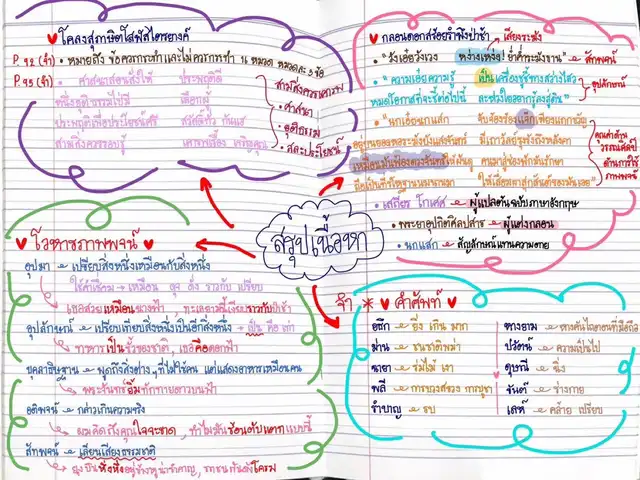 ♥ โคลงสุภาษิตโสฬสไตรยางค์
P.92 (จำ) • หมายถึง ข้อควรกระทำและไม่ควรกระทำ 16 หมวด หมวดละ 3 ข้อ
P.93 (จำ)
ประพฤติ
สามสิ่งควรเคารพ
• ศาสนา
• ยุติธรรม
• สละประโยชน์
♥ กลอนดอกสร้อยรำพึงป่าช้า
เสียงระฆัง
• "วังเอ๋ยวังเวง หง่างเหง่ง! ย่ำค่ำระฆังขาน" → สัทพจน์
• "ความเอ๋ยความรู้ เป็นเครื่องชูชี้ทางสว่างไสว
หมดโอกาสที่จะชี้ต่อไปนี้ ละห่วงใยอยากรู้ลงสู่ดิน"
อุปลักษณ์
• "นกเอ๋ยนกแสก จับจ้องร้องแจ๊กเพียงแถกขวัญ
อยู่บนยอดหอระฆังบังแสงจันทร์ มีเถาวัลย์รุงรังถึงหลังคา
เหมือนมันฟ้องดวงจันทร์ให้ผันดู คนมาสู่ซ่องพักมันรักษา
ถือเป็นที่รโหฐานนมนานมา ให้เสื่อมผาสุกสันต์ของมันเอย"
คุณค่าด้านวรรณศิลป์
ด้านการใช้ภาพพจน์
• เสฐียร โกเศศ → ผู้แปลต้นฉบับภาษาอังกฤษ
• พระยาอุปกิตศิลปสาร → ผู้แต่งกลอน
• นกแสก → สัญลักษณ์แทนความตาย
สรุปเนื้อหา
♥ โวหารภาพพจน์ ♥
อุปมา → เปรียบสิ่งหนึ่งเหมือนกับสิ่งหนึ่ง
ใช้คำเชื่อม → เหมือน ดุจ ดั่ง ราวกับ เปรียบ
เธอสวยเหมือนนางฟ้า, ทะเลตรงนี้เงียบราวกับป่าช้า
อุปลักษณ์ → เปรียบเทียบสิ่งหนึ่งเป็นอีกสิ่งหนึ่ง → เป็น คือ เท่า
ทหารเป็นรั้วของชาติ, เธอคือดอกฟ้า
บุคลาธิษฐาน → พูดถึงสิ่งต่างๆที่ไม่ใช่คน แต่แสดงอาการเหมือนคน
พระจันทร์ยิ้มทักทายดาวบนฟ้า
อติพจน์ → กล่าวเกินความจริง
ผมคิดถึงคุณใจจะขาด, ทำไมมันร้อนตับแตกแบบนี้
สัทพจน์ → เลียนเสียงธรรมชาติ
ยุงบินหึ่งหึ่งอยู่ข้างหูน่ารำคาญ, รถชนกันดังโครม
จำ * ♥ คำศัพท์ ♥
อธึก → ยิ่ง เกิน มาก
ม่าน → ชนชาติพม่า
ฉายา → ร่มไม้ เงา
พลี → การบวงสรวง การบูชา
รำบาญ → รบ
ปวัตน์ → ความเป็นไป
ดุษณี → นิ่ง
ขันธ์ → ร่างกาย
เล่ห์ → คล้าย เปรียบ